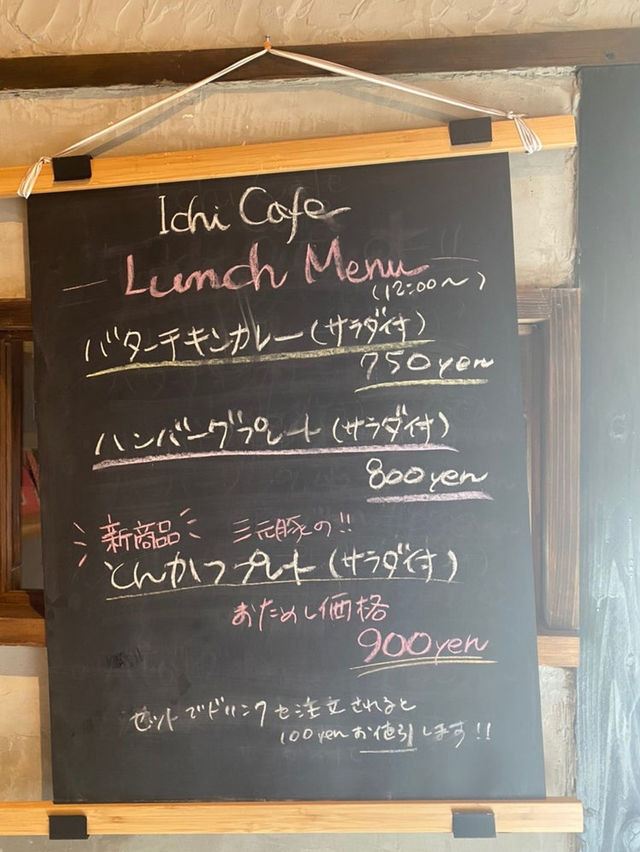 Ichi Cafe
Lunch Menu
(12:00〜)
バターチキンカレー(サラダ付)
750yen
ハンバーグプレート(サラダ付)
800yen
新商品 三元豚の!!
とんかつプレート(サラダ付)
おためし価格
900yen
セットでドリンクを注文されると
100yenお値引します!!